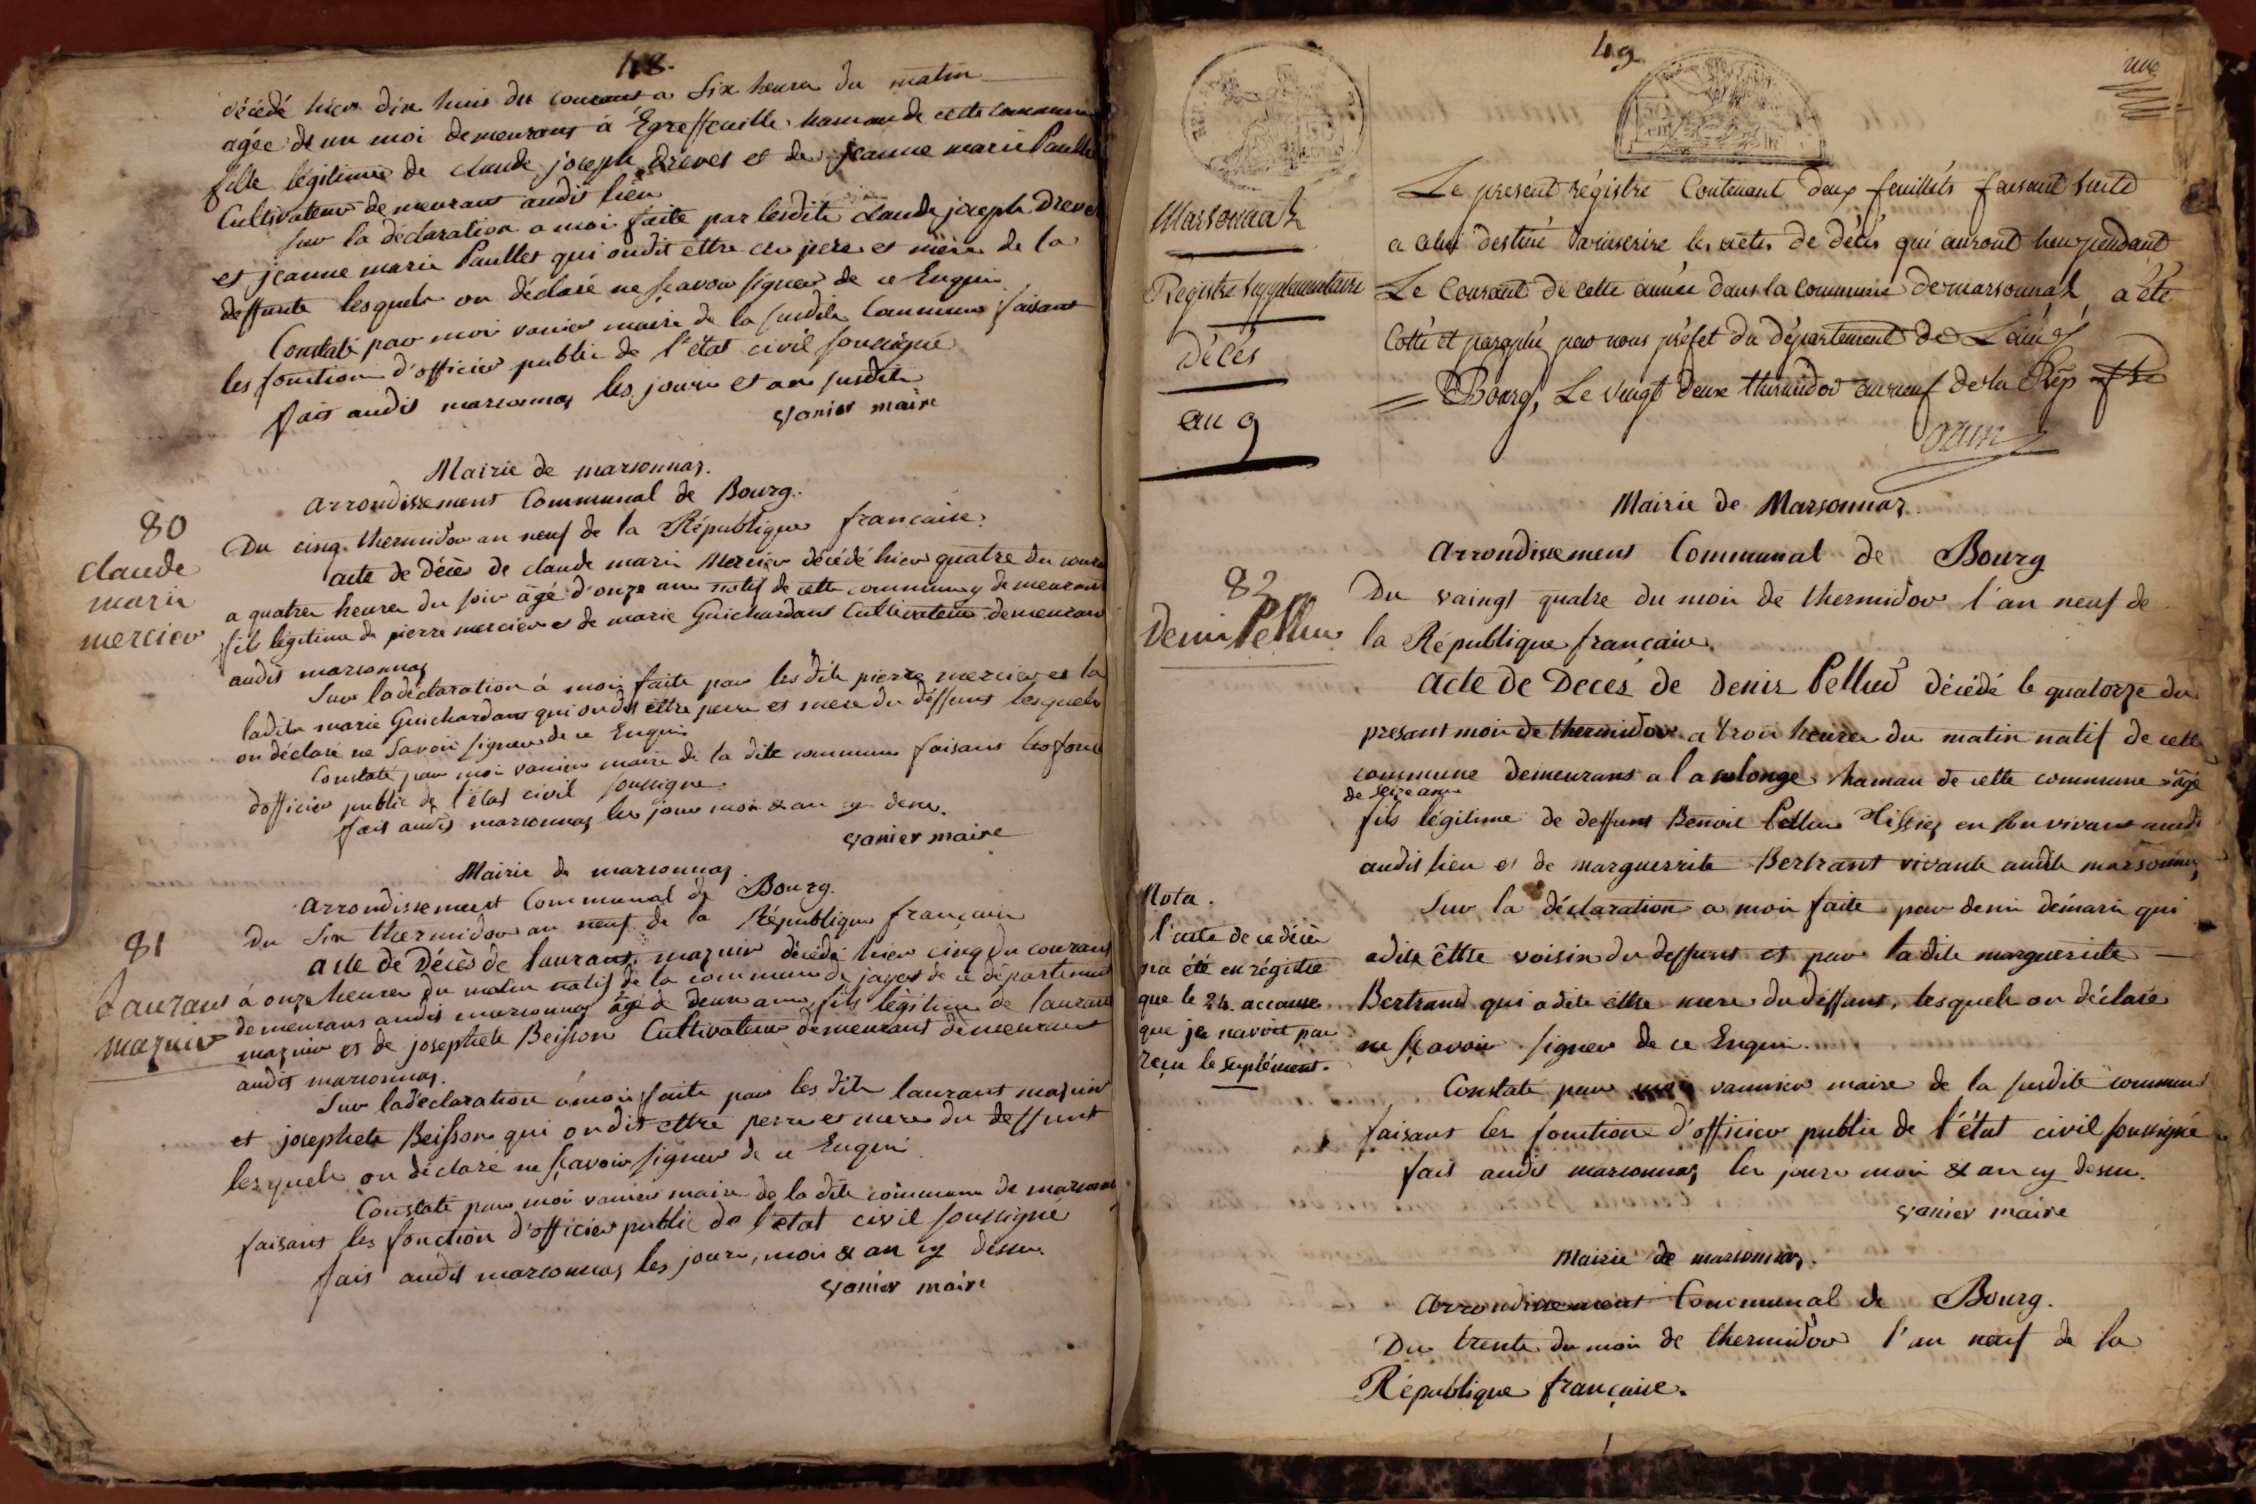 48.
décédé hier dix huis du courant a Six heures du matin
agée de un moi demeurans à Egreffeuille hamau de cette commune
fille légitime de claude joseph dreves et de jeanne marie Paullet
Cultivateur demeurans audis lieu
Sur la déclaration a moi faite par lesdits claude joseph Dreves
et jeanne marie Paullet qui ondit ettre les pere et mère de la
deffunte lesquels on déclaré ne sçavoir signer de ce Enquis
Constaté par moi vanier maire de la susdite Commune faisant
les fonction d'officier public de l'état civil soussigné
fais audis marsonnas les jours et an susdits
vanier maire
Mairie de marsonnas.
arrondissement Communal de Bourg.
80
claude
marie
mercier
Du cinq thermidor an neuf de la République francaise.
acte de décès de claude marie Mercier décédé hier quatre du courant
a quatre heures du soir agé d'onze ans natif de cette commune y demeurant
fils légitime de pierre mercier et de marie Guichardans Cultivateurs demeurans
audis marsonnas
Sur la déclaration à moi faite par les dits pierre mercier et la
ladite marie Guichardans qui ondit ettre pere et mere du deffuns lesquels
on déclaré ne savoir signer de ce Enquis
Constaté par moi vanier maire de la dite commune faisans les fonct
dofficier public de l'état civil soussigné
fais audis marsonnas les jour moi & an cy desu.
vanier maire
Mairie de marsonnas.
arrondissement Communal de Bourg.
81
Laurans
maznier
Du Six thermidor an neuf de la République française
acte de Décès de laurans maznier décédé hier cinq du courans
à onze heures du matin natif de la commune de jayat de ce département
demeurans audis marsonnas âgé de deux ans, fils légitime de laurans
maznier et de josephete Beisson Cultivateur demeurans demeurans
audis marsonnas.
Sur la déclaration à moi faite par les dits laurans maznier
et josephete Beisson qui ondit ettre perre et mere du deffunt
lesquels on déclaré ne sçavoir signer de ce Enquis
Constaté par moi vanier maire de la dite commune de marsonnas
faisans les fonction d'officier public de l'état civil soussigné
fais audis marsonnas les jours, moi & an cy desu.
vanier maire
49
Marsonnas
Registre supplémentaire
Décès
an 9
Le present régistre Contenant deux feuillets faisant suite
a celui destiné a inscrire les actes de décès qui auront lieu pendant
Le Courant de cette année dans la commune de marsonnas, a été
Cotté et paraphé par nous préfet du département de L'ain
= Bourg, Le vingt deux thermidor an neuf de la Rép
Mairie de Marsonnas.
arrondissement Communal de Bourg
82
Deni Pellus
Du vaingt quatre du moi de thermidor l'an neuf de
la République française.
acte de Décès de Denis Pellus décédé le quatorze du
presant moi de thermidor a troi heures du matin natif de cette
commune demeurans a la molonge hamau de cette commune âgé
de seize ans
fils légitime de deffuns Benoit Pellus Tissier en son vivant
audis lieu et de marguerrite Bertrant vivante audit marsonnas
Sur la déclaration a moi faite par deni demarin qui
adite êttre voisin du deffuns et par ladite marguerite —
Bertrand qui adite ettre mere du deffunt, lesquels on déclaré
ne sçavoir signer de ce Enquis.
Constaté par moi vannier maire de la susdite commune
faisans les fonction d'officier public de l'état civil soussigné
fais audis marsonnas les jours moi & an cy desu.
vanier maire
Nota.
l'acte de ce décès
na été enrégistré
que le 24 accause
que je navoit pas
reçu le suplément.
Mairie de marsonnas.
arrondissement Communal de Bourg.
Du trente du moi de thermidor l'an neuf de la
République française.